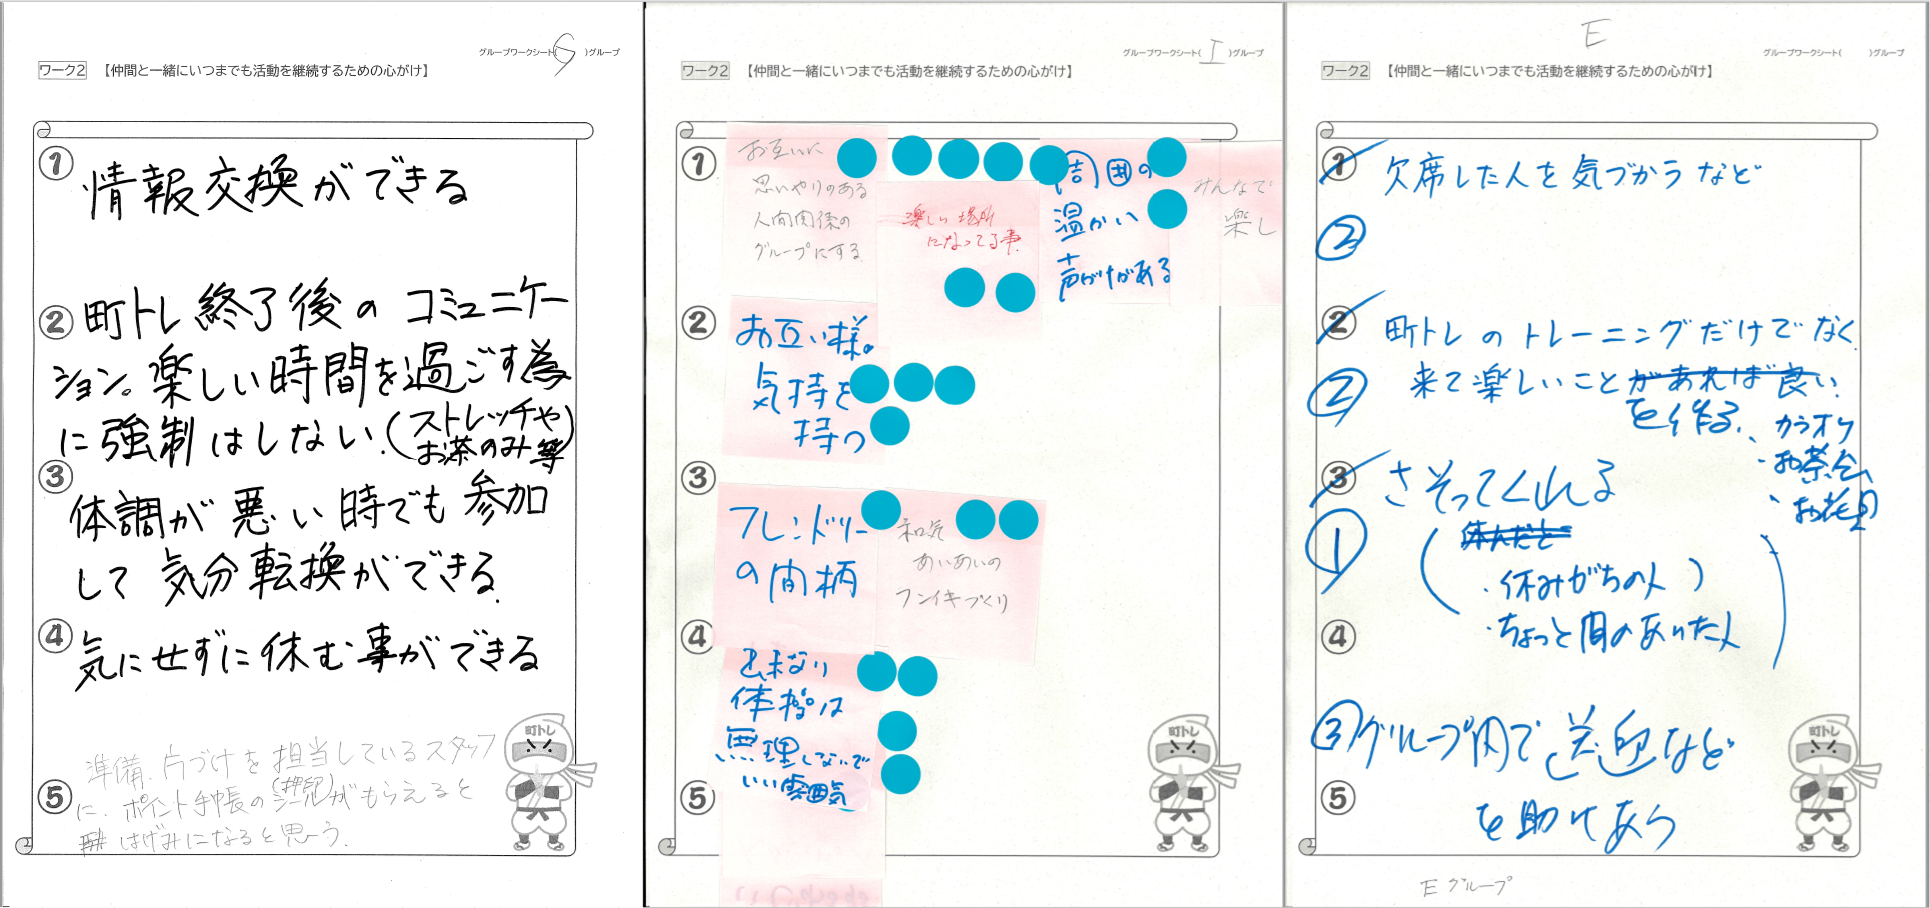 グループワークシート(G)グループ
ワーク2 【仲間と一緒にいつまでも活動を継続するための心がけ】
① 情報交換ができる
② 町トレ終了後のコミュニケー
ション。楽しい時間を過ごす為
に強制はしない。(ストレッチや
お茶のみ等)
③ 体調が悪い時でも参加
して気分転換ができる。
④ 気にせずに休む事ができる
準備、片づけを担当しているスタッフ
⑤ に、ポイント手帳のシール(押印)がもらえると
はげみになると思う。
町トレ
グループワークシート(I)グループ
ワーク2 【仲間と一緒にいつまでも活動を継続するための心がけ】
①
お互いに
思いやりのある
人間関係の
グループにする
楽しい場所
になってる事
周囲の
温かい
声がけがある
みんなで
楽し
②
お互い様。
気持を
持つ
③
フレンドリー
の間柄
和気
あいあいの
フンイキづくり
④
体操は
無理しないで
いい雰囲気
⑤
町トレ
E
グループワークシート( )グループ
ワーク2 【仲間と一緒にいつまでも活動を継続するための心がけ】
① 欠席した人を気づかうなど
②
② 町トレのトレーニングだけでなく
② 来て楽しいことがあれば良い
を作る。
・カラオケ
・お茶会
・お花見
③ さそってくれる
①
休んだと
(・休みがちの人)
・ちょっと間のあいた人
④
③ グループ内で送迎など
⑤ を助けあう
町トレ
Eグループ